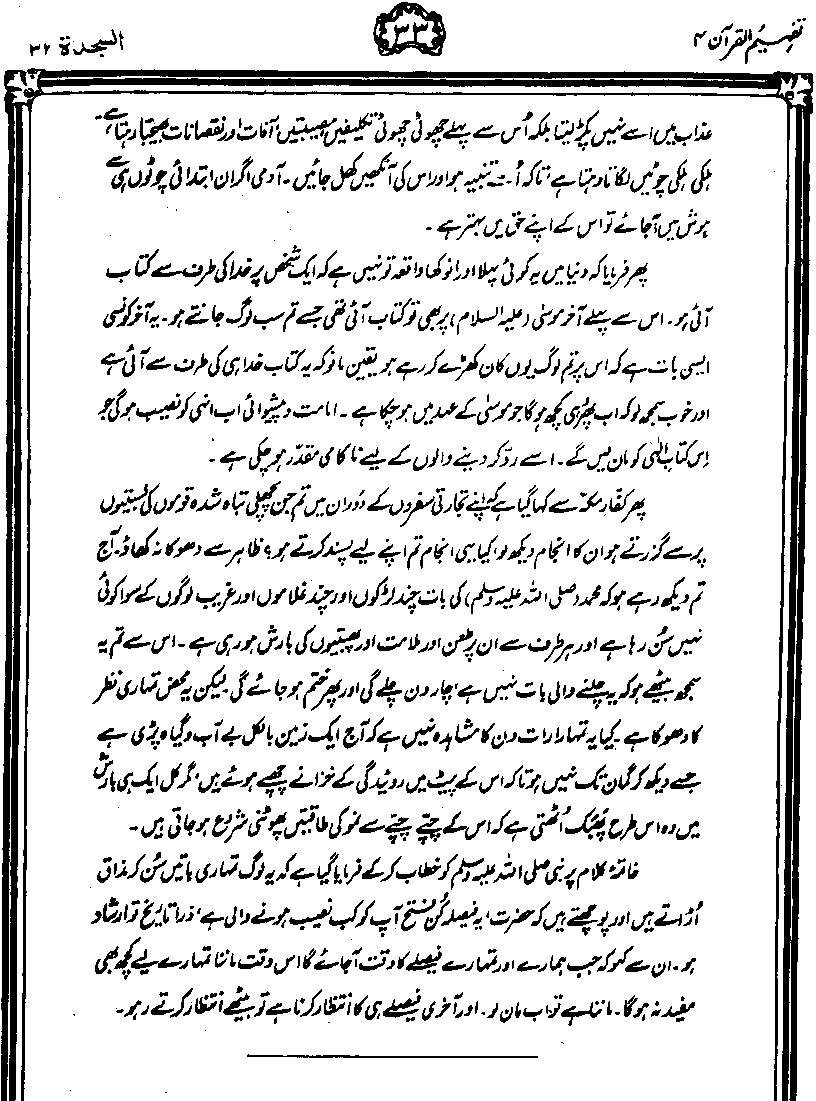 تفہیم القرآن ۴
۳۳
السجدۃ ۳۲
عذاب میں اسے نہیں پکڑ لیتا بلکہ اُس سے پہلے چھوٹی چھوٹی تکلیفیں، مصیبتیں، آفات اور نقصانات بھیجتا رہتا ہے۔
ہلکی ہلکی چوٹیں لگاتا رہتا ہے، تاکہ اُسے تنبیہ ہو اور اس کی آنکھیں کھل جائیں۔ آدمی اگر ان ابتدائی چوٹوں ہی سے
ہوش میں آجائے تو اس کے اپنے حق میں بہتر ہے۔
پھر فرمایا کہ دنیا میں یہ کوئی پہلا اور انوکھا واقعہ تو نہیں ہے کہ ایک شخص پر خدا کی طرف سے کتاب
آئی ہو۔ اس سے پہلے آخر موسیٰ (علیہ السلام) پر بھی تو کتاب آئی تھی جسے تم سب لوگ جانتے ہو۔ یہ آخر کونسی
ایسی بات ہے کہ اس پر تم لوگ یوں کان کھڑے کر رہے ہو۔ یقین مانو کہ یہ کتاب خدا ہی کی طرف سے آئی ہے
اور خوب سمجھ لو کہ اب پھر وہی کچھ ہوگا جو موسیٰ کے عہد میں ہو چکا ہے۔ امامت و پیشوائی اب انہی کو نصیب ہوگی جو
اِس کتابِ الٰہی کو مان لیں گے۔ اسے رد کر دینے والوں کے لیے ناکامی مقدّر ہو چکی ہے۔
پھر کفارِ مکہ سے کہا گیا ہے کہ اپنے تجارتی سفروں کے دَوران میں تم جن پچھلی تباہ شدہ قوموں کی بستیوں
پر سے گزرتے ہو ان کا انجام دیکھ لو۔ کیا یہی انجام تم اپنے لیے پسند کرتے ہو؟ ظاہر سے دھوکا نہ کھاؤ۔ آج
تم دیکھ رہے ہو کہ محمد (صلی اللہ علیہ وسلم) کی بات چند لڑکوں اور چند غلاموں اور غریب لوگوں کے سوا کوئی
نہیں سُن رہا ہے اور ہر طرف سے ان پر طعن اور ملامت اور پھبتیوں کی بارش ہو رہی ہے۔ اس سے تم یہ
سمجھ بیٹھے ہو کہ یہ چلنے والی بات نہیں ہے، چار دن چلے گی اور پھر ختم ہو جائے گی۔ لیکن یہ محض تمہاری نظر
کا دھوکا ہے۔ کیا یہ تمہارا رات دن کا مشاہدہ نہیں ہے کہ آج ایک زمین بالکل بے آب و گیاہ پڑی ہے
جسے دیکھ کر گمان تک نہیں ہوتا کہ اس کے پیٹ میں روئیدگی کے خزانے چھپے ہوئے ہیں، مگر کل ایک ہی بارش
میں وہ اس طرح پھبک اُٹھتی ہے کہ اس کے چپّے چپّے سے نمو کی طاقتیں پھوٹنی شروع ہو جاتی ہیں۔
خاتمۂ کلام پر نبی صلی اللہ علیہ وسلم کو خطاب کر کے فرمایا گیا ہے کہ یہ لوگ تمہاری باتیں سُن کر مذاق
اُڑاتے ہیں اور پوچھتے ہیں کہ حضرت، یہ فیصلہ کُن فتح آپ کو کب نصیب ہونے والی ہے، ذرا تاریخ تو ارشاد
ہو۔ ان سے کہو کہ جب ہمارے اور تمہارے فیصلے کا وقت آجائے گا اس وقت ماننا تمہارے لیے کچھ بھی
مفید نہ ہوگا۔ ماننا ہے تو اب مان لو۔ اور آخری فیصلے ہی کا انتظار کرنا ہے تو بیٹھے انتظار کرتے رہو۔